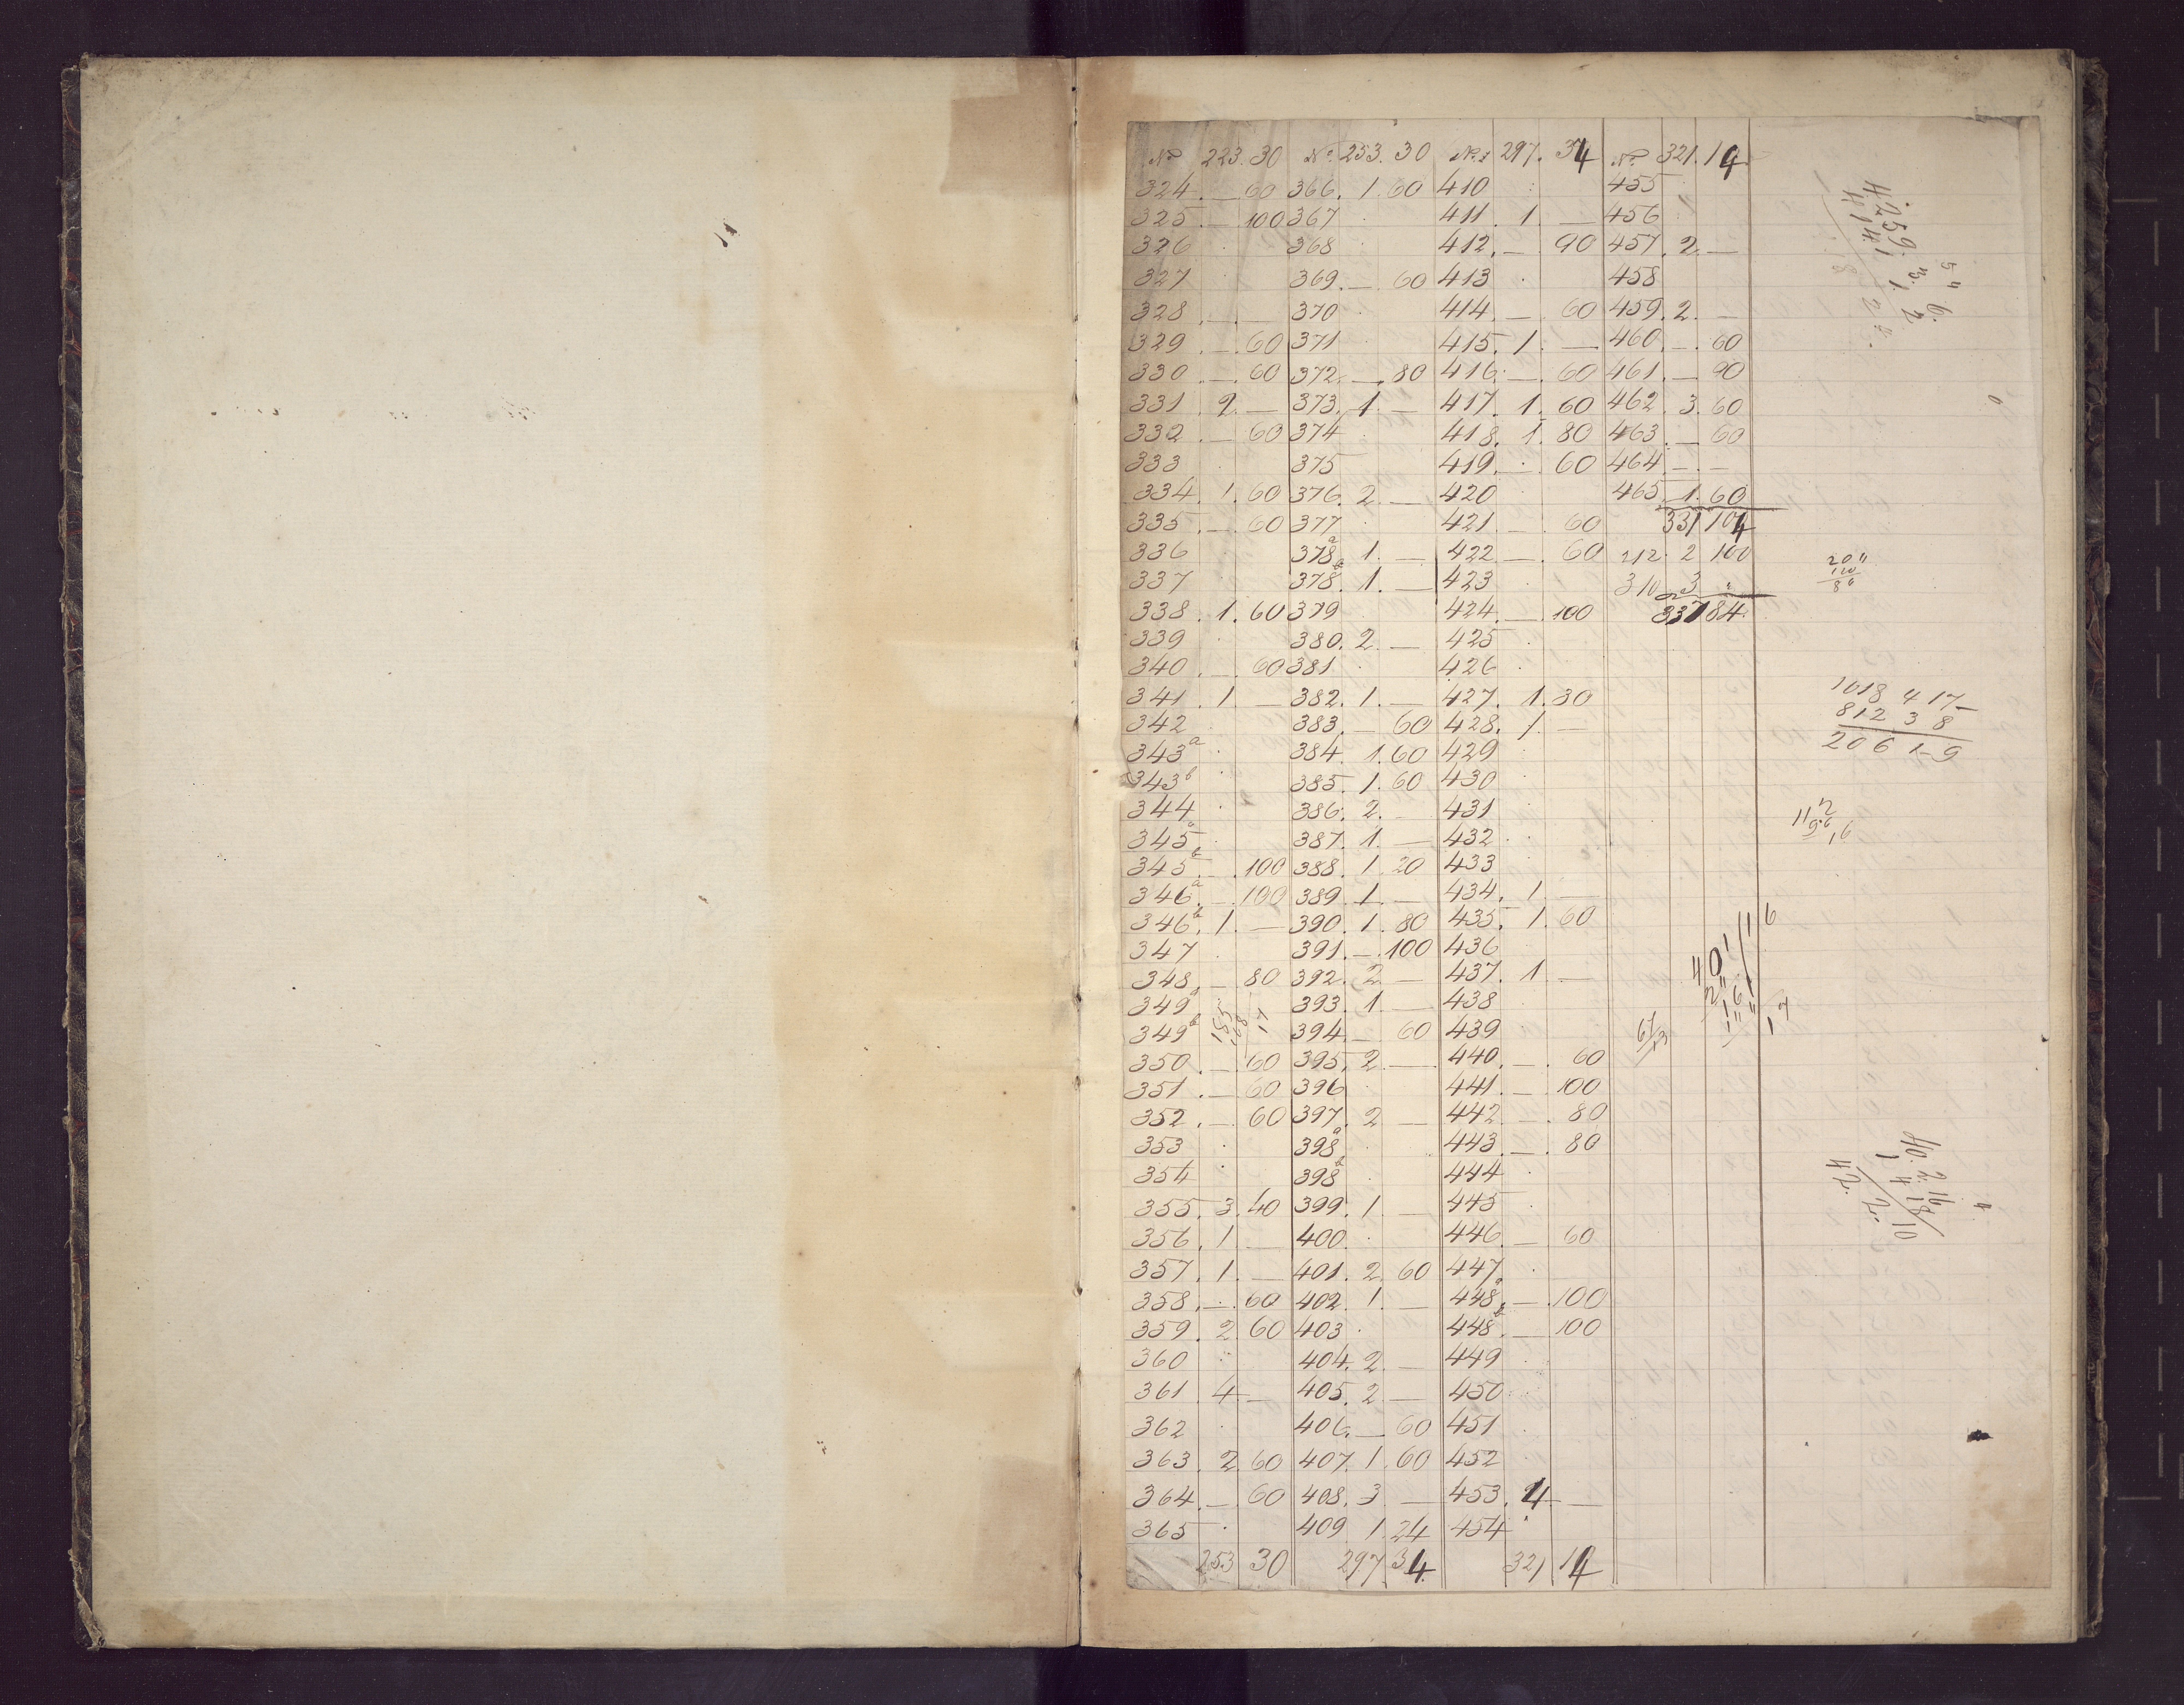 No 223. 30 No. 253. 30 No. 297. 34 No 321. 14
324. — 60 366. 1. 60 410 455
325. — 100 367 411. 1. — 456
326 368 412. — 90 457. 2. —
327 369. — 60 413 458
328. — 370 414. — 60 459. 2. —
329. — 60 371 415. 1. — 460. — 60
330. — 60 372. — 80 416. — 60 461. — 90
331. 2. — 373. 1. — 417. 1. 60 462. 3. 60
332. — 60 374 418. 1. 80 463. — 60
333 375 419. — 60 464 — —
334. 1. 60 376. 2. — 420 465. 1. 60
335. — 60 377 421. — 60 331 104
336 378a. 1. — 422. — 60 212. 2 100
337 378b. 1. — 423 310. 3 "
338. 1. 60 379 424. — 100 337 84.
339 380. 2. — 425
340. — 60 381 426
341. 1. — 382. 1. — 427. 1. 30
342 383. — 60 428. 1. —
343a 384. 1. 60 429
343b 385. 1. 60 430
344 386. 2. 431
345a 387. 1. — 432
345b — 100 388. 1. 20 433
346a. — 100 389. 1. — 434. 1. —
346b. 1. — 390. 1. 80 435. 1. 60
347 391. — 100 436
348. — 80 392. 2. — 437. 1 —
349a 393. 1. — 438
349b 394. — 60 439
350. — 60 395. 2. — 440. — 60
351. — 60 396 441. — 100
352. — 60 397. 2. — 442. — 80
353 398a 443. — 80
354 398b 444
355. 3. 40 399. 1. — 445
356. 1. — 400. 446. — 60
357. 1. — 401. 2. 60 447.
358. — 60 402. 1. — 448a. — 100
359. 2. 60 403 448b. — 100
360 404. 2. — 449
361. 4. — 405. 2. — 450
362 406. — 60 451
363. 2. 60 407. 1. 60 452
364. — 60 408. 3. — 453. 4. —
365 409 1. 24 454
253 30 297 34 321 14
1018 4 17
812 3 8
206 1 9